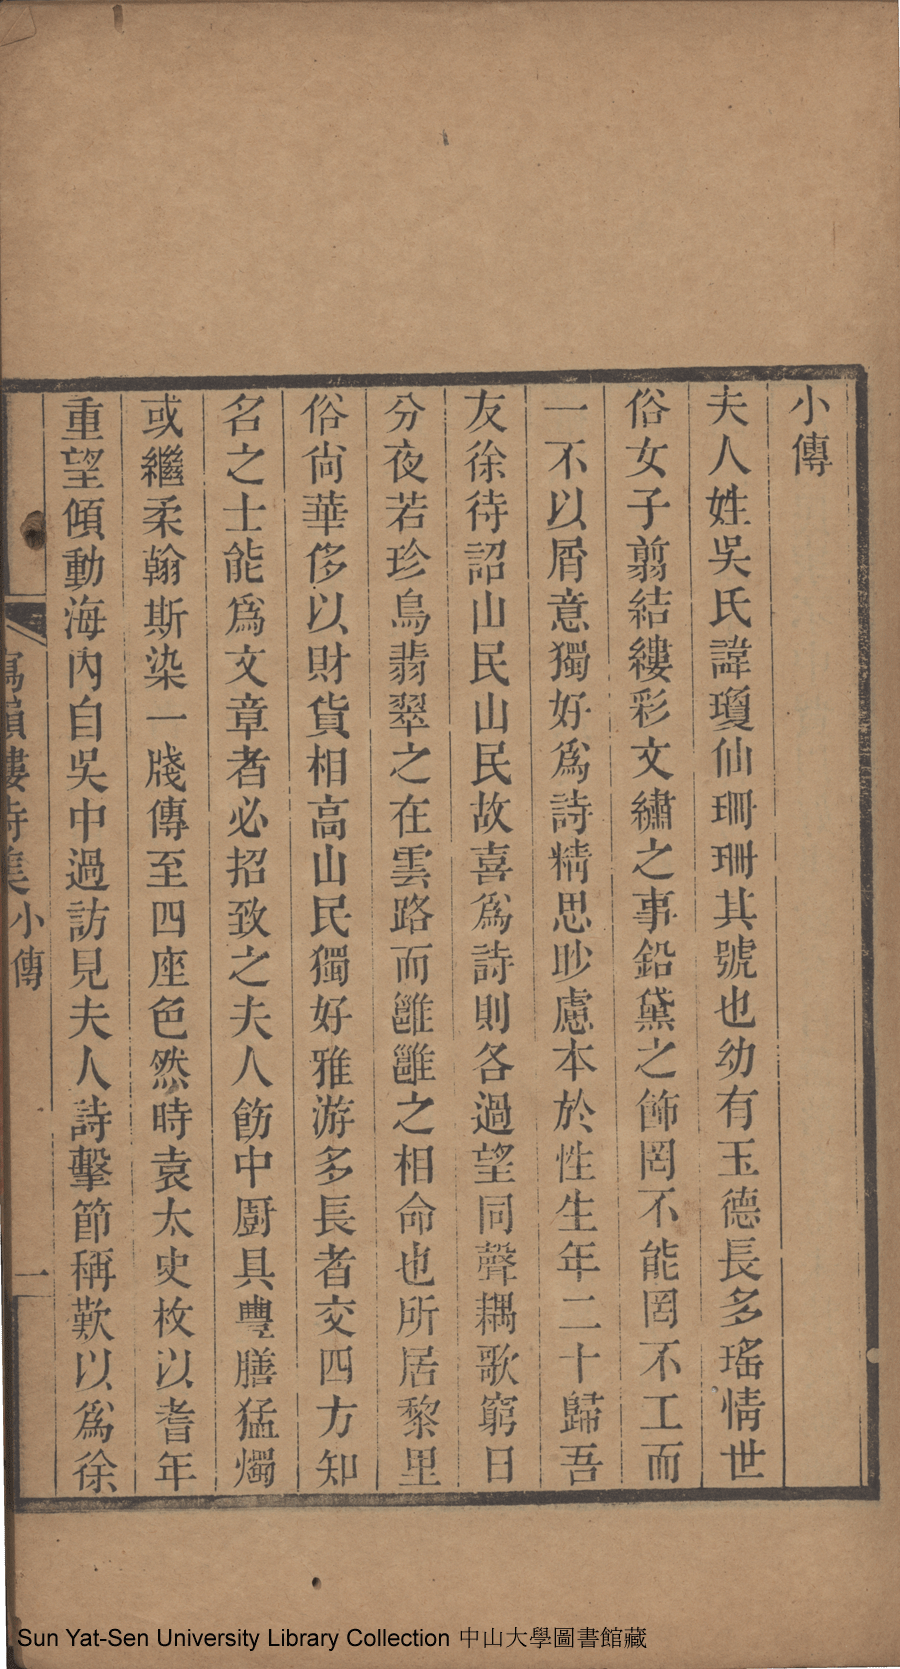 小傳
夫人姓吳氏諱瓊仙珊珊其號也幼有玉德長多瑤情世
俗女子翦結縷彩文繡之事鉛黛之飾罔不能罔不工而
一不以屑意獨好爲詩精思眇慮本於性生年二十歸吾
友徐待詔山民山民故喜爲詩則各過望同聲耦歌窮日
分夜若珍鳥翡翠之在雲路而雝雝之相命也所居黎里
俗尙華侈以財貨相高山民獨好雅游多長者交四方知
名之士能爲文章者必招致之夫人飭中厨具豐膳猛燭
或繼柔翰斯染一牋傳至四座色然時袁太史枚以耆年
重望傾動海內自吳中過訪見夫人詩擊節稱歎以爲徐
寫韻樓詩集 小傳 一
Sun Yat-Sen University Library Collection 中山大學圖書館藏